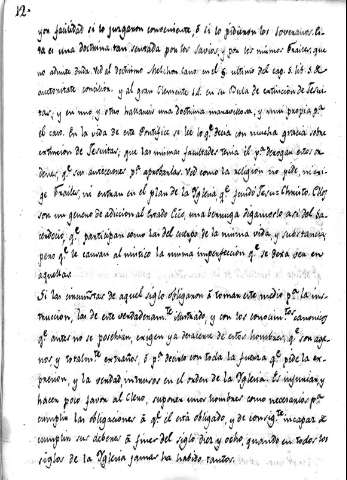 12.
yor facilidad si lo juzgaron conveniente, ó si lo pidieron los soveranos. Es-
ta es una doctrina tan sentada por los Savios, y por los mismos Frailes, que
no admite duda. Ved el doctisimo Melchor Cano en el § ultimo del cap. 5. lib. 5. de
auctoritate concilior. y al gran Clemente 14 en su Bula de extincion de Jesui-
tas; y en uno y otro hallareis una doctrina maravillosa, y mui propia pª
el caso. En la vida de este Pontifice se lee lo qº decia con mucha gracia sobre
extincion de Jesuitas, que las mismas facultades tenia él pª derogar estos or-
denes, qº sus antecesores pª aprobarlas. Ved como la religion no pide, ni exi-
ge Frailes, ni entran en el plan de la Iglesia qº fundó Jesu-Christo. Ellos
son un genero de adicion al Estado Ecco, una berruga digamoslo asi del Sa-
cerdocio qº participan como las del cuerpo de la misma vida, y substancia;
pero qº le causan al mistico la misma imperfeccion qº se dexa ver en
aquellas.
Si las circunstas de aquel siglo obligaron á tomar este medio pª la ins-
truccion, las de este verdaderamte ilustrado, y con los conocimtos canonicos
qº antes no se posehian, exigen ya desacerse de estos hombres, qº son age-
nos y totalmte extraños, ó pª decirlo con toda la fuerza qº pide la ex-
presion, y la verdad, intrusos en el orden de la Iglesia. Es injurian y
hacen poco favor al Clero, suponer unos hombres como necesarios pª
cumplir las obligaciones á qº el está obligado, y de consigte incapaz de
cumplir sus deberes á fines del siglo diez y ocho, quando en todos los
siglos de la Iglesia jamas ha habido tantos.